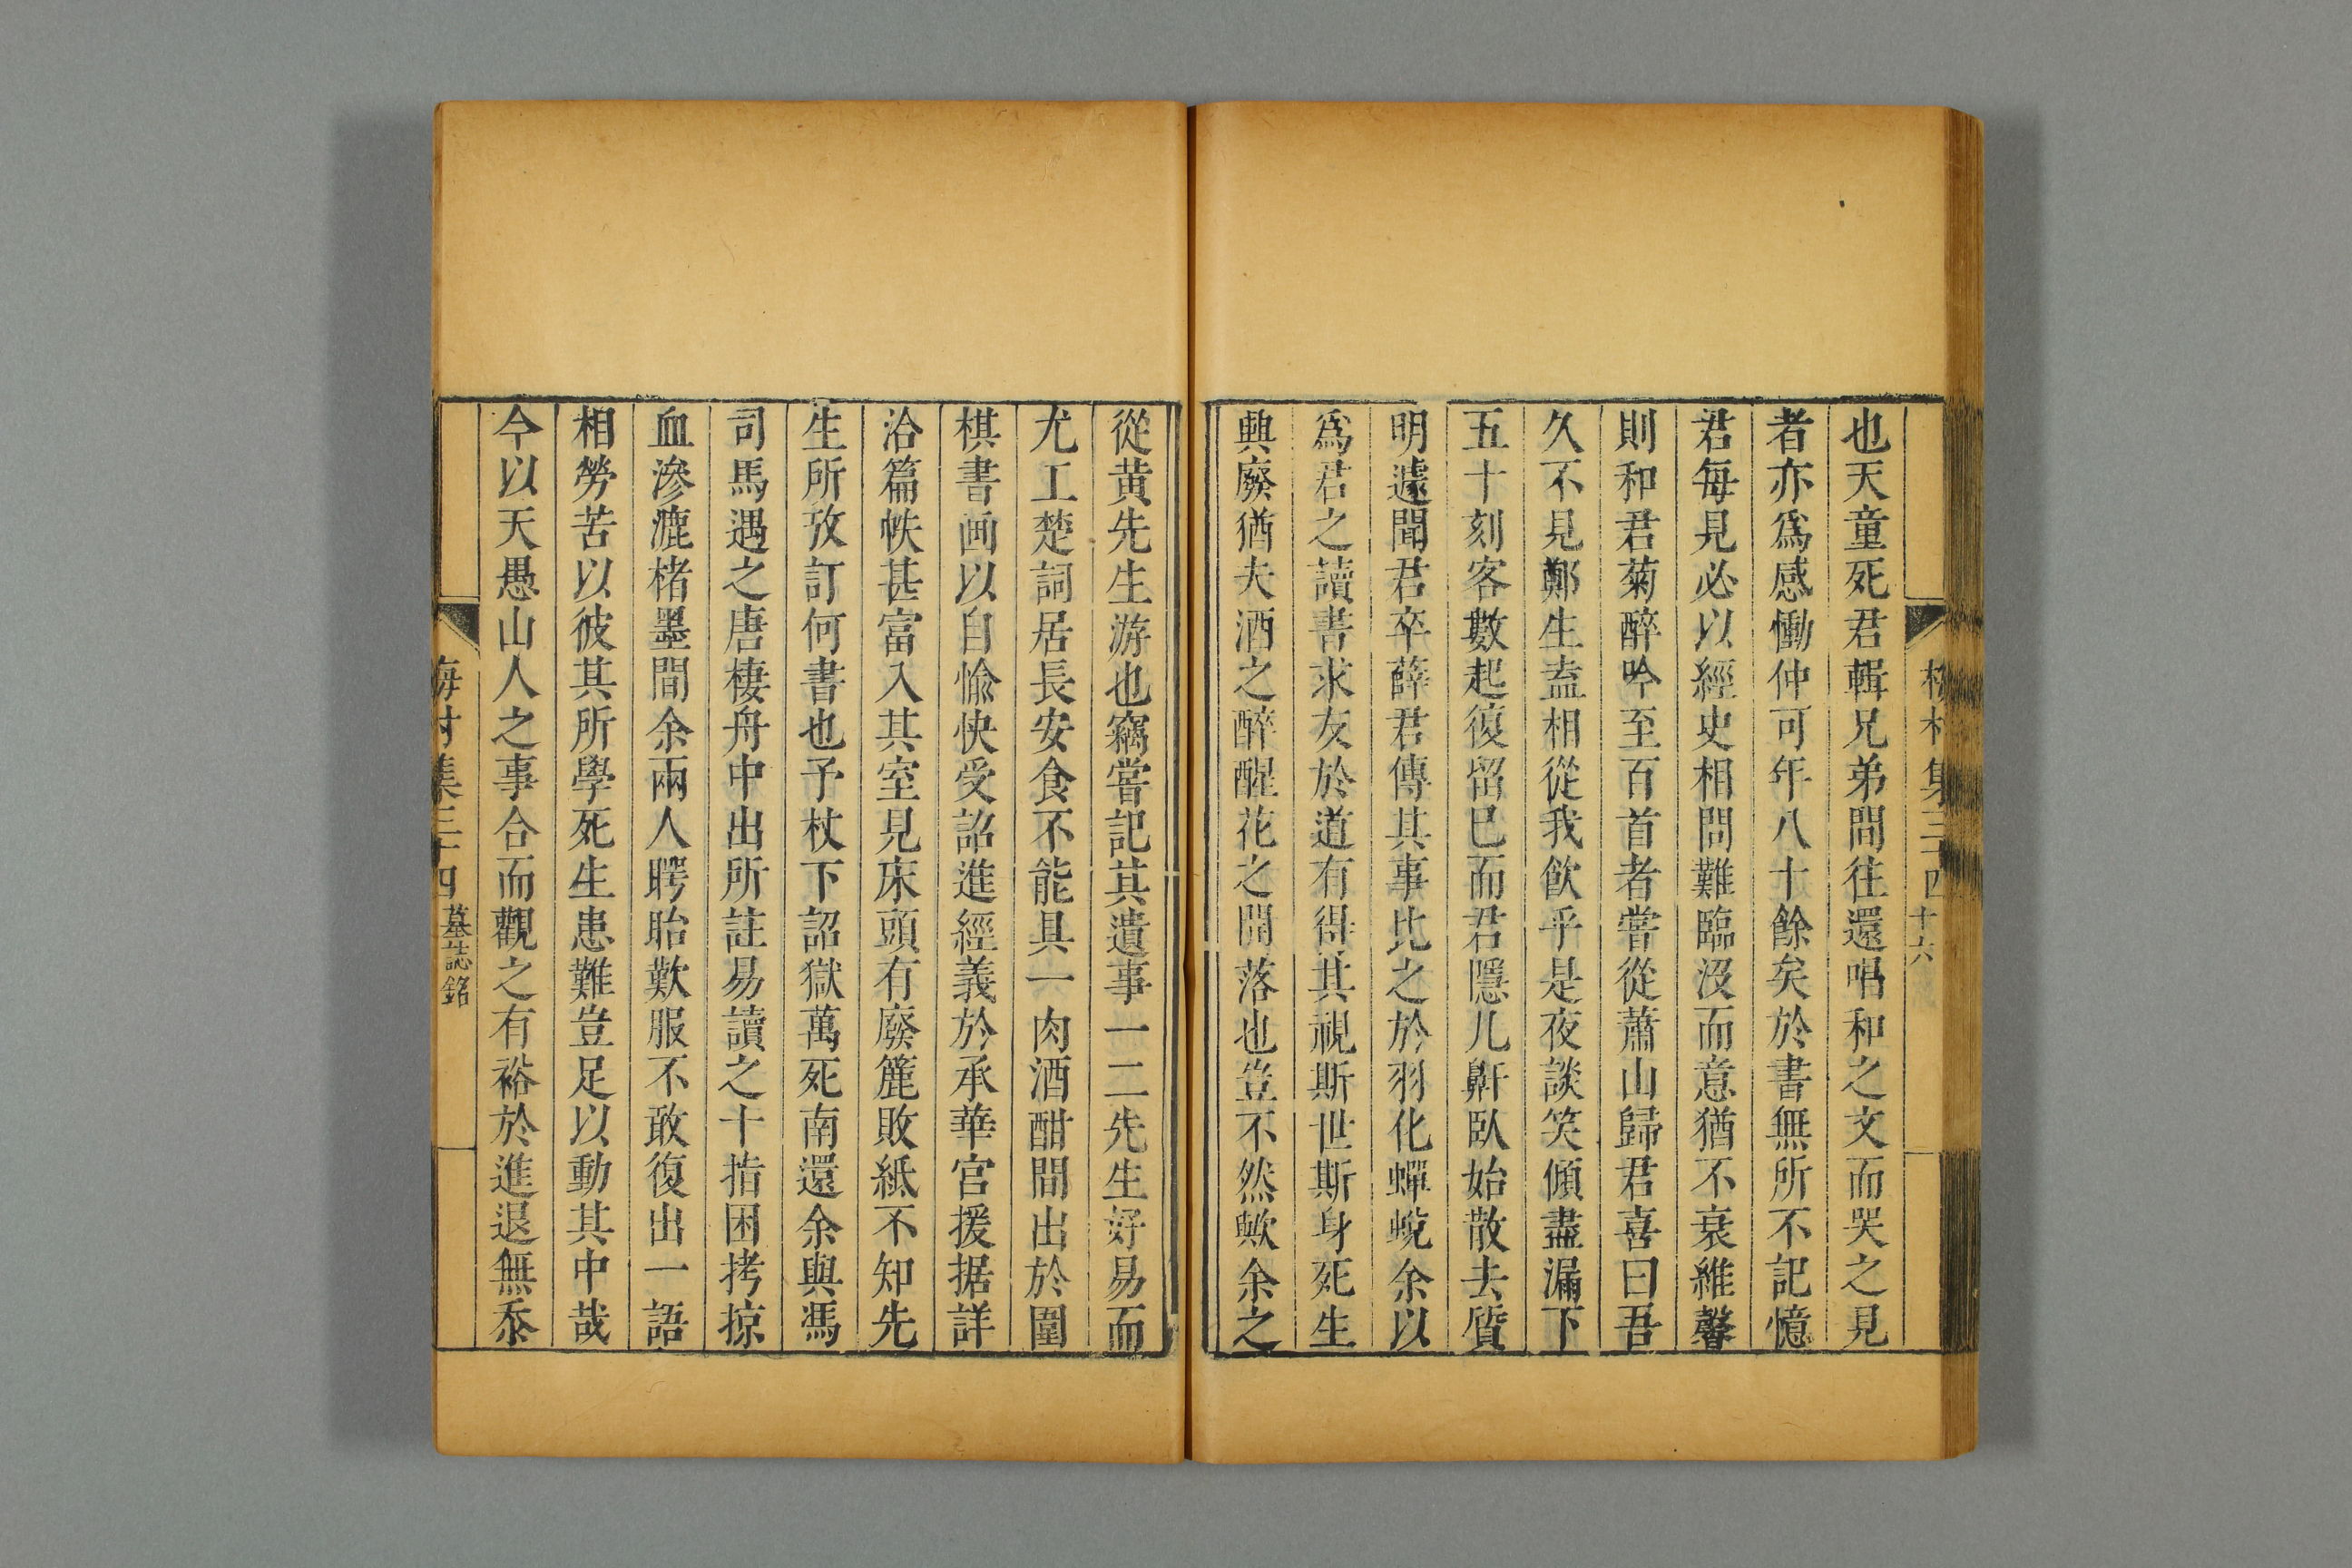 也天童死君輯兄弟問往還唱和之文而哭之見
者亦為感慟仲可年八十餘矣於書無所不記憶
君每見必以經史相問難臨沒而意猶不衰維馨
則和君菊醉吟至百首者嘗從蕭山歸君喜曰吾
久不見鄭生盍相從我飲乎是夜談笑傾盡漏下
五十刻客數起復留已而君隱几鼾臥始散去質
明遽聞君卒薛君傳其事比之於羽化蟬蛻余以
為君之讀書求友於道有得其視斯世斯身死生
興廢猶夫酒之醉醒花之開落也豈不然歟余之
從黄先生游也竊嘗記其遺事一二先生好易而
尤工楚詞居長安食不能具一肉酒酣間出於圍
棋書画以自愉快受詔進經義於承華宮援据詳
洽篇帙甚富入其室見床頭有廢簏敗紙不知先
生所攷訂何書也予杖下詔獄萬死南還余與馮
司馬遇之唐棲舟中出所註易讀之十指困拷掠
血滲漉楮墨間余兩人愕眙歎服不敢復出一語
相勞苦以彼其所學死生患難豈足以動其中哉
今以天愚山人之事合而觀之有裕於進退無忝
梅村集三十四 墓誌銘